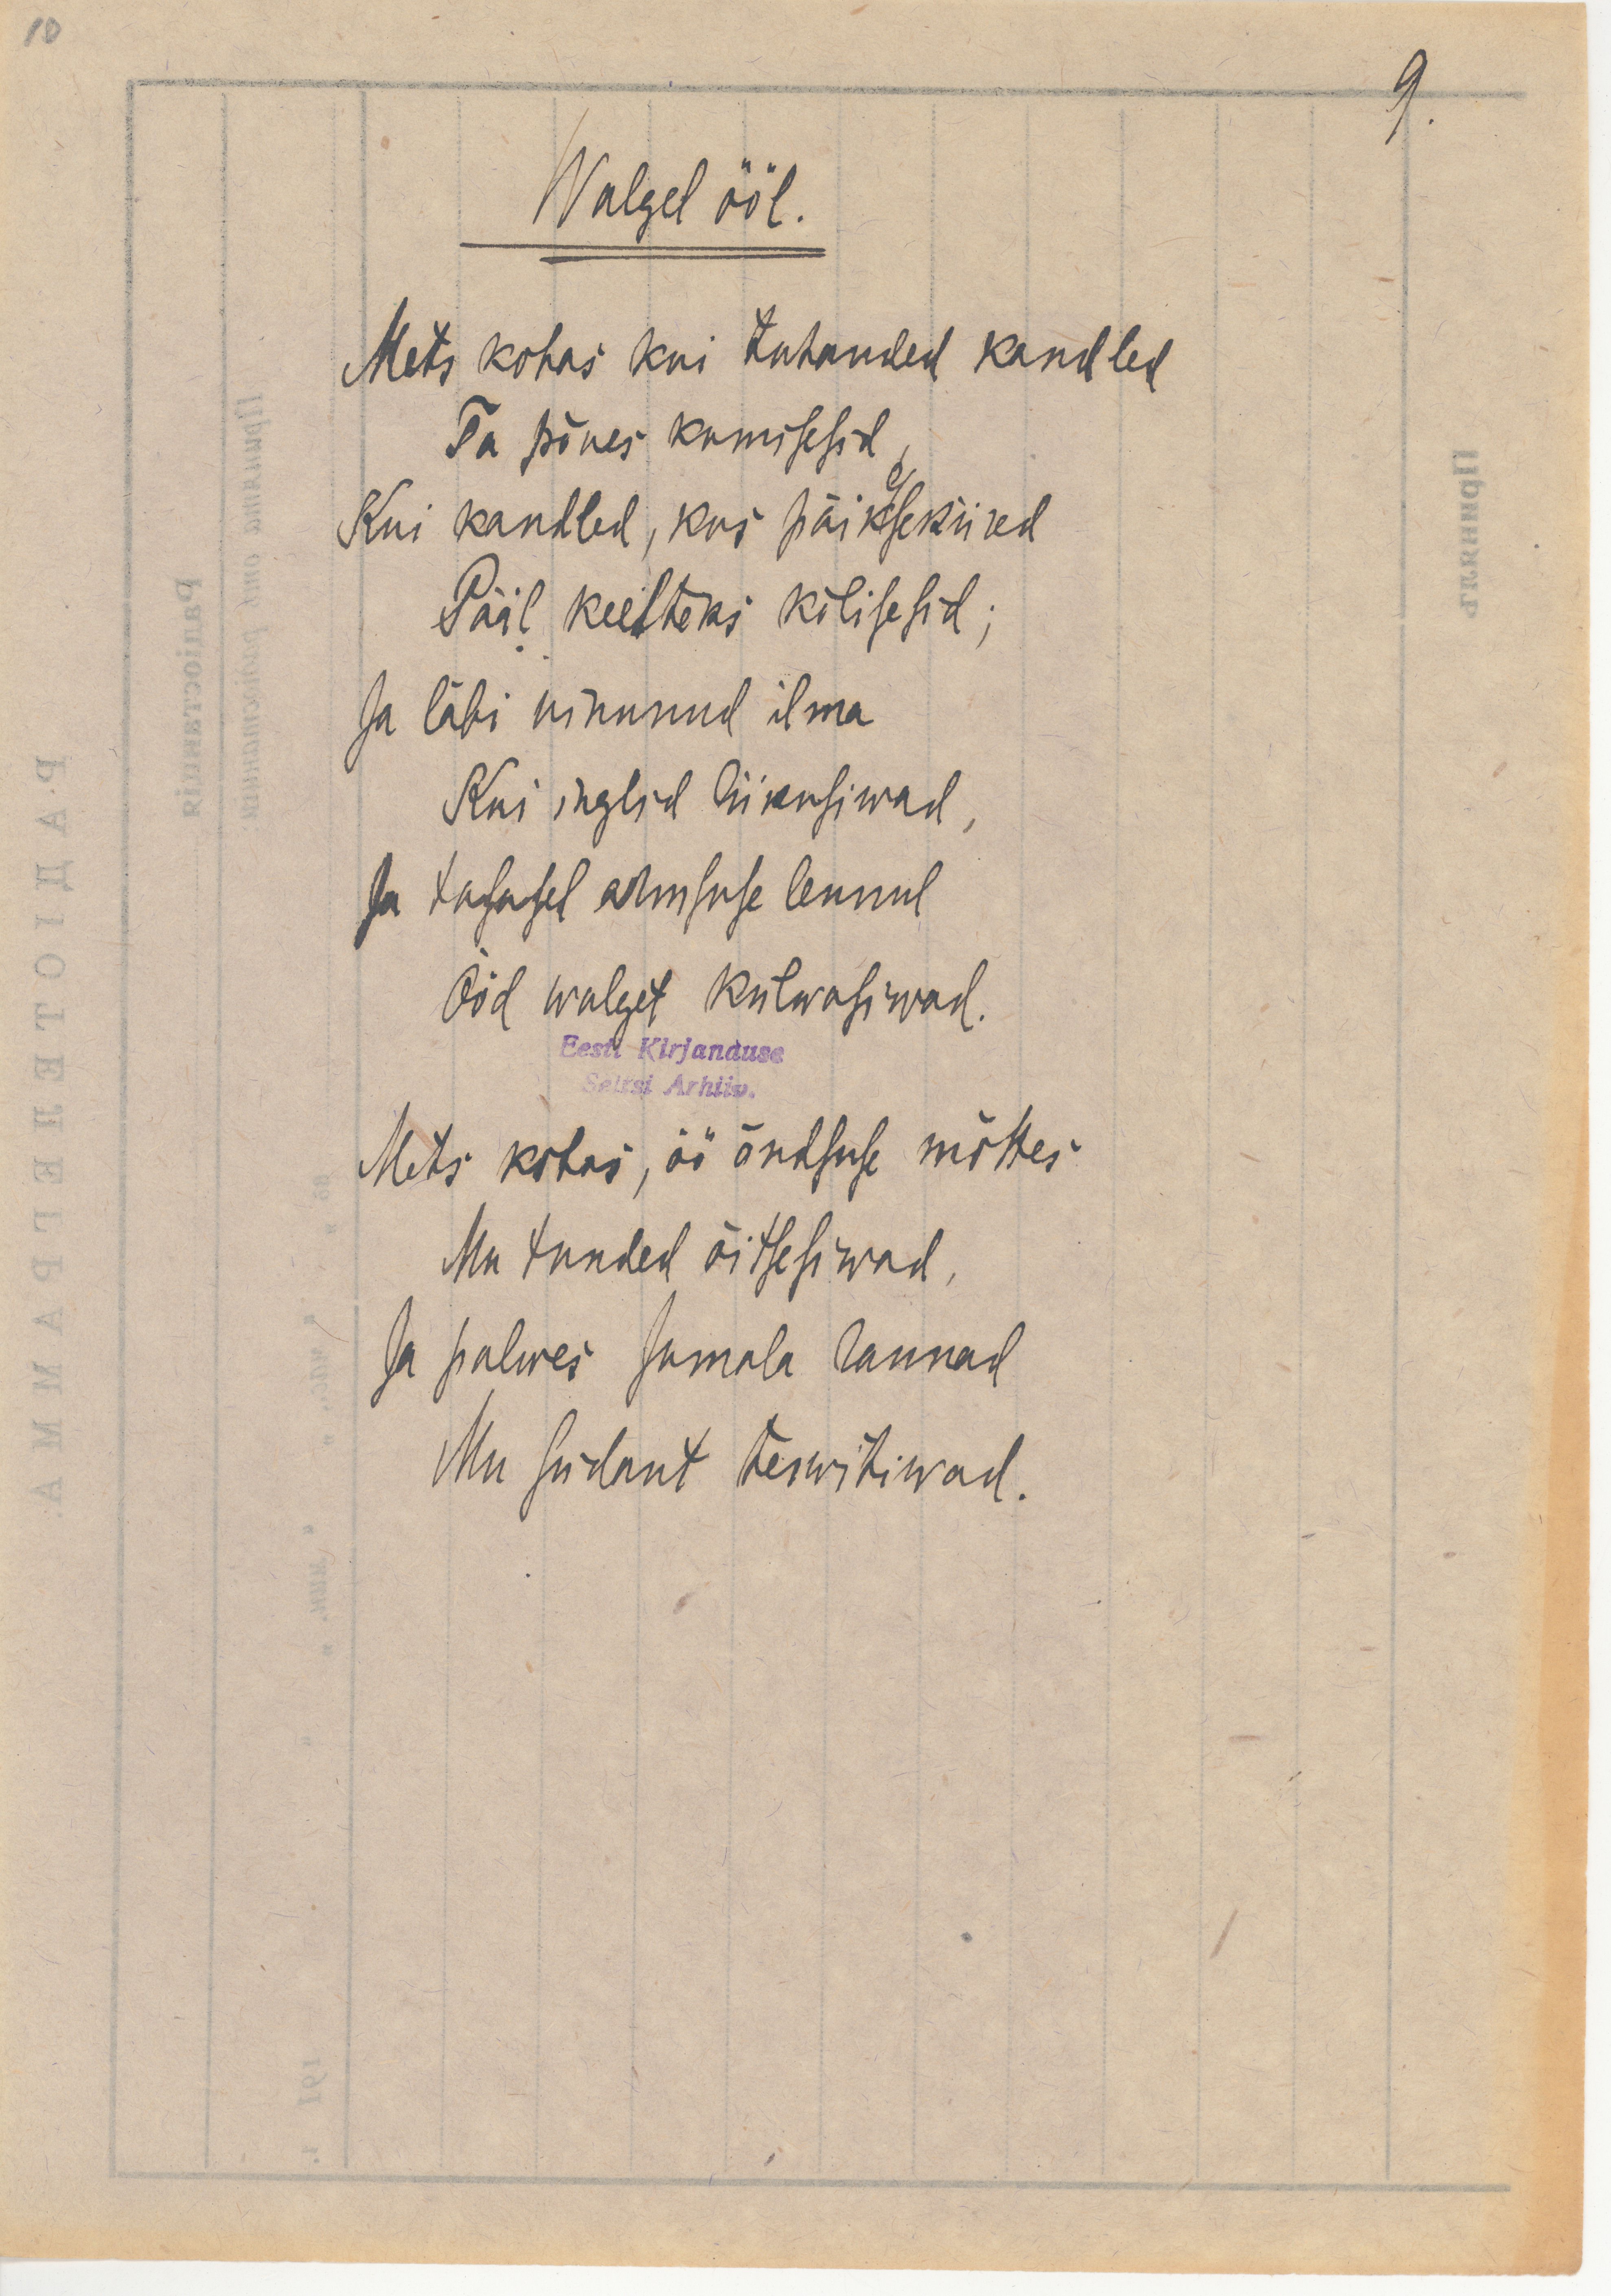 10
9.
Walgel ööl.
Mets kohas kui tuhanded kandled
Ta põues kumisesid,
Kui kandled, kus päikesekiired
Pääl keelteks kõlisesid;
Ja läbi uinunud ilma
Kui inglid liikusiwad,
Ja tasasel armsuse lennul
Ööd walget külwasiwad.
Eesti Kirjanduse
Seltsi Arhiiv.
Mets kohas, öö õndsuse mõttes
Mu tunded õitsesiwad,
Ja palwes Jumala rannad
Mu südant terwitiwad.
РАДІОТЕЛЕГРАММА.
Радіостанція
Принята
191 г.